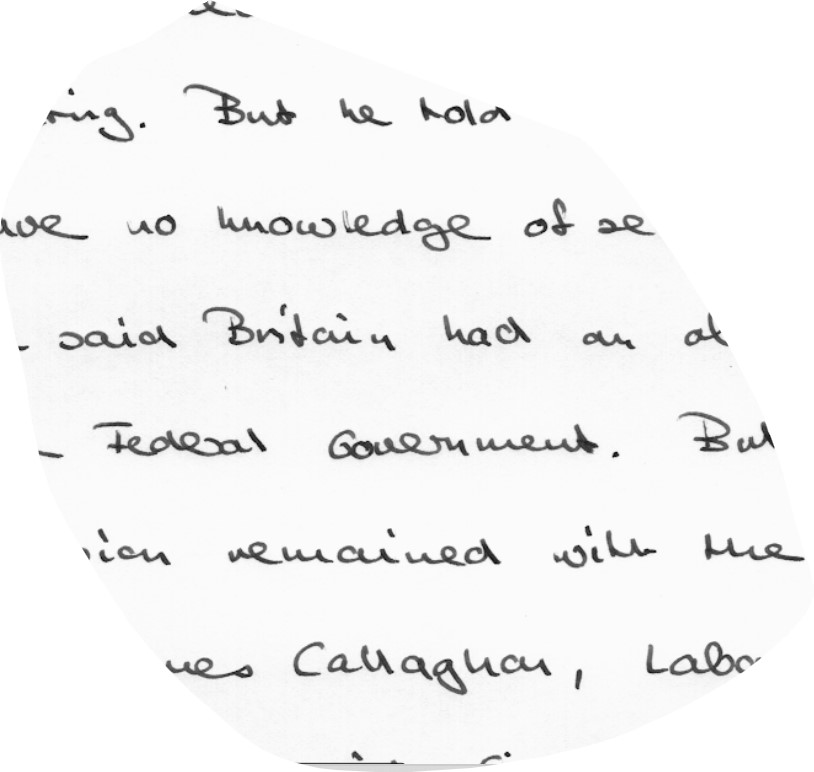 But he told
no knowledge of se
said Britain had an at
Federal Government. But
remained with the
Callaghan, Labo